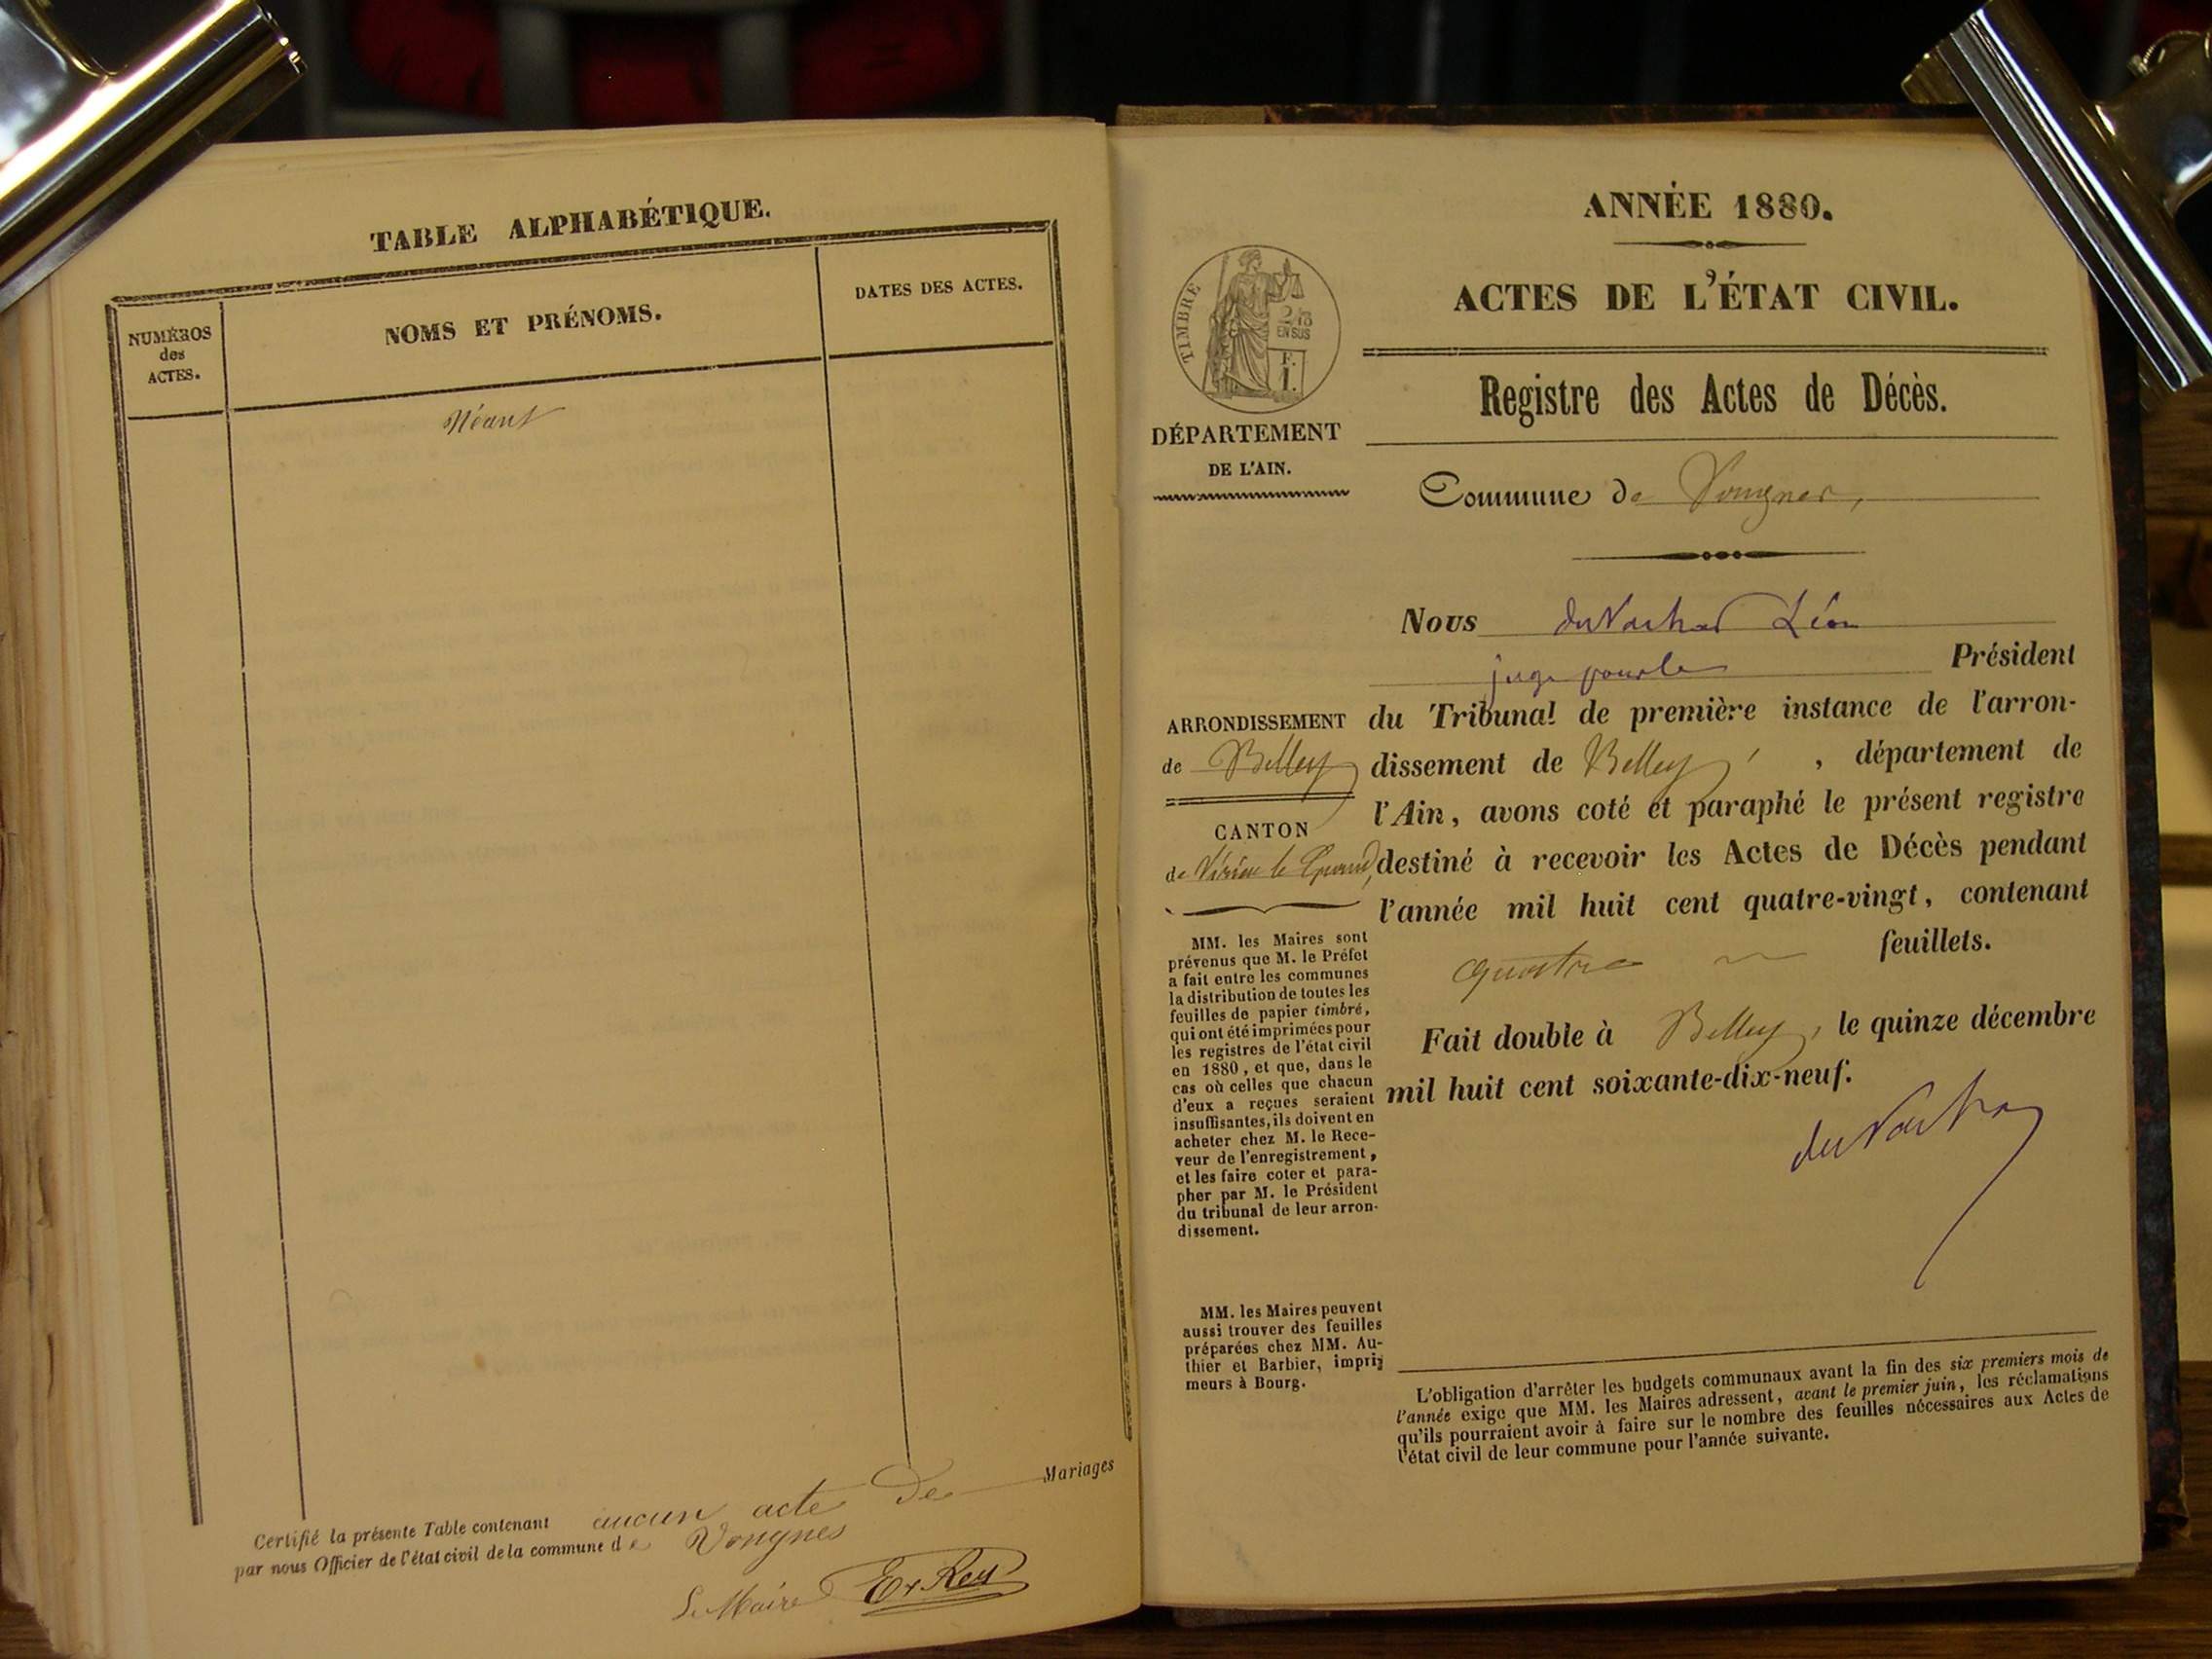 TABLE ALPHABÉTIQUE.
NUMÉROS
des
ACTES.
NOMS ET PRÉNOMS.
DATES DES ACTES.
Néant
Certifié la présente Table contenant aucun acte de Mariages
par nous Officier de l'état civil de la commune de Vongnes
Le Maire
ANNÉE 1880.
ACTES DE L'ÉTAT CIVIL.
Registre des Actes de Décès.
TIMBRE
2/10
EN SUS
F.
1.
DÉPARTEMENT
DE L'AIN.
Commune de Vongnes,
Nous Léon
juge pour le Président
du Tribunal de première instance de l'arron-
dissement de Belley, département de
l'Ain, avons coté et paraphé le présent registre
destiné à recevoir les Actes de Décès pendant
l'année mil huit cent quatre-vingt, contenant
quatre feuillets.
Fait double à Belley, le quinze décembre
mil huit cent soixante-dix-neuf.
ARRONDISSEMENT
de Belley
CANTON
de Virieu le Grand,
MM. les Maires sont
prévenus que M. le Préfet
a fait entre les communes
la distribution de toutes les
feuilles de papier timbré,
qui ont été imprimées pour
les registres de l'état civil
en 1880, et que, dans le
cas où celles que chacun
d'eux a reçues seraient
insuffisantes, ils doivent en
acheter chez M. le Rece-
veur de l'enregistrement,
et les faire coter et para-
pher par M. le Président
du tribunal de leur arron-
dissement.
MM. les Maires peuvent
aussi trouver des feuilles
préparées chez MM. Au-
thier et Barbier, impri-
meurs à Bourg.
L'obligation d'arrêter les budgets communaux avant la fin des six premiers mois de
l'année exige que MM. les Maires adressent, avant le premier juin, les réclamations
qu'ils pourraient avoir à faire sur le nombre des feuilles nécessaires aux Actes de
l'état civil de leur commune pour l'année suivante.